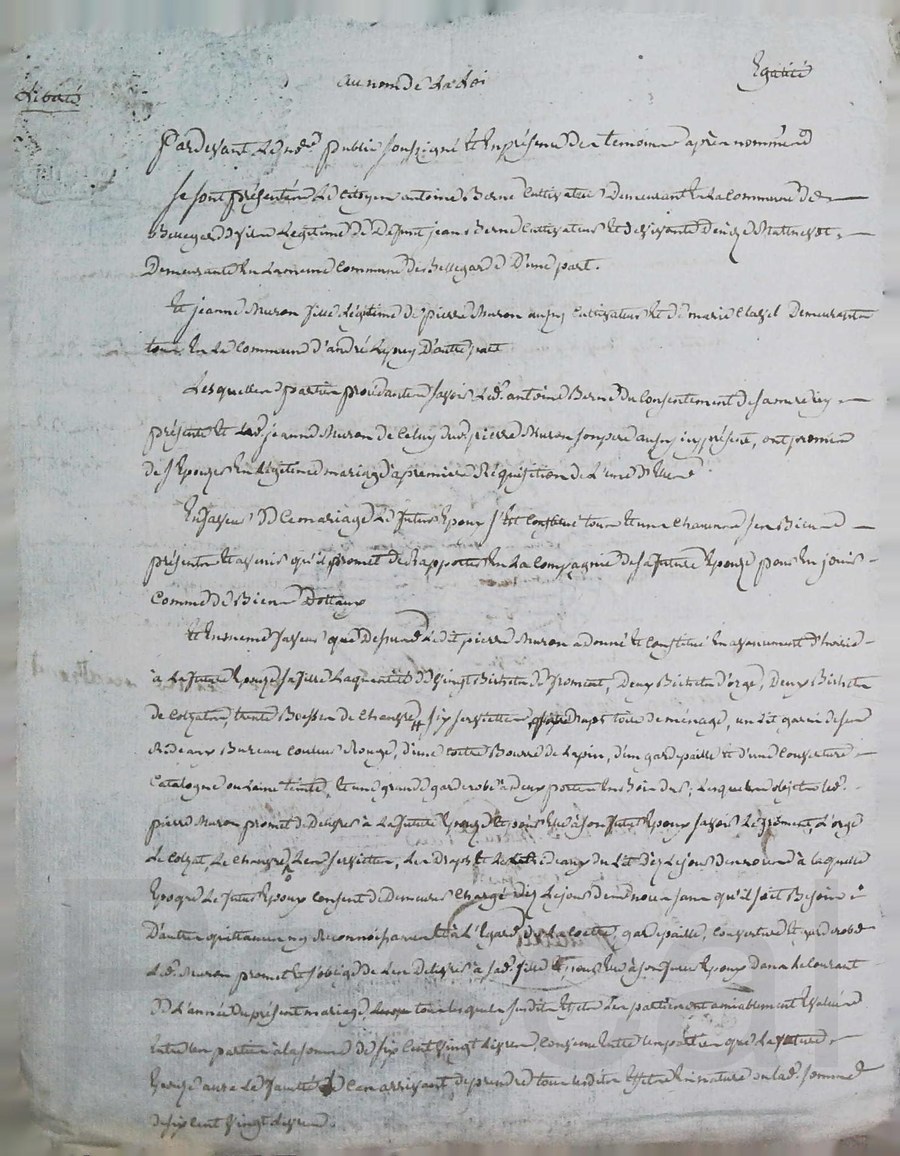 Liberté au nom de la loi Egalité
Pardevant le no.re public soussigné et en présence des temoins après nommés
se sont présentés le citoyen antoine Berne cultivateur demeurant en la commune de
Bellegarde fils legitime de defunt jean Berne cultivateur et de vivante
demeurante en la meme commune de Bellegarde d'une part.
Et jeanne Muron fille légitime de pierre Muron aussy cultivateur et de marie Clavel demeurants
tous en la commune d'andré le puy d'autre part
Lesquelles parties procedantes savoir led. antoine Berne du consentement de sa mere icy
présente et lad. jeanne Muron de celuy dud. pierre Muron son pere aussy icy présent, ont promis
de s'épouser en légitime mariage a premiere réquisition de l'une d'elles
En faveur de ce mariage le futur époux s'est constitué tous et uns chacuns ses biens
présents et avenir qu'il promet de rapporter en la compagnie de sa future épouze pour en jouir
comme de biens dottaux
Et en meme faveur que dessus ledit pierre Muron a donné et constitué en avancement d'hoirie
à la future épouze sa fille la quantité de vingt bichets de froment, deux bichets d'orge, deux bichets
de colzat, trente de chanvre, six serviettes, draps toile de ménage, un lit garni de ses
rideaux bureau couleur rouge, d'une coette bourre de lapin, d'un gardepaille et d'une couverture
catalogne ou laine teinte, et une grande garderobe à deux portes en bois dur; lesquels objets led.
pierre Muron promet de delivrer à la future épouze et pour elle à son futur époux savoir le froment, l'orge
le colzat, le chanvre, les serviettes, les draps et les rideaux du lit dès le jour des noces à laquelle
époque le futur époux consent de demeurer chargé dès le jour des noces sans qu'il soit besoin
d'autre quittance ny reconnoissance et à l'égard de la coette, gardepaille, couverture et garderobe
led. Muron promet et s'oblige de les delivrer à sad. fille et pour elle à son futur époux dans le courant
de l'année du présent mariage, tous lesquels susdits effets les parties ont amiablement évalué
entre les parties à la somme de six cent vingt livres, convenu entre les parties que la future
épouze aura la faculté le cas arrivant de prendre tous lesdits effets en nature ou lad. somme
de six cent vingt livres.